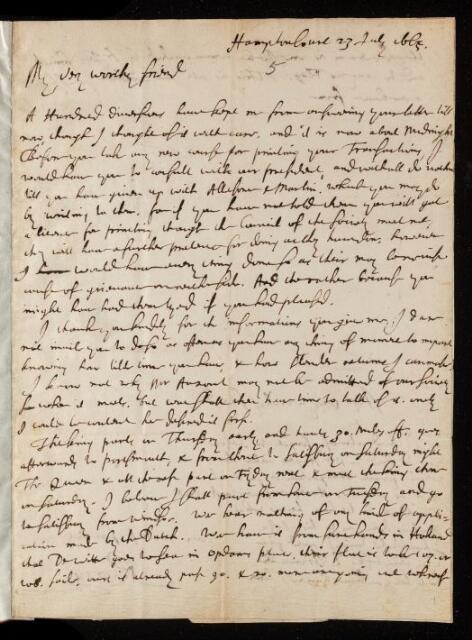 Hampton Court 23 July 1665.
5
My very worthy friend
A Hundred diversions have kept me from answering your letter till
now though I thought of it with care, and it is now about Midnight
Before you take any new course for printing your Transactions, I
would have you to consult with our president, and withall do nothing
till you have given up with Allestree & Martin, which you may do
by writing to them, for if you have not told them you will get
a license for printing though the Council of the Society meet not,
they will have a further pretence for doing as they have done, however
I would have every thing done so as there may be no
cause of grievance on either side. And the rather because you
might have had them tyed if you had pleased.
I thank you kindly for the informations you give me, I dare
not invite you to do so as often as you have any thing of moment to impart
knowing how little time you have, & how slender returns I can make.
I know not why Mr Auzout may not be admitted of our Society
when it meets, but wee shall then have time to talk of it. only
I could be content he desired it first.
The King parts on Thursday early and hunts 30 miles off, goes
afterwards to portsmouth & from thence to Salisbury on Saturday night
The Queen & all the rest part on Fryday next & meet the King there
on Saturday. I believe I shall part from hence on Tuesday and go
to Salisbury from Windsor. We hear nothing of any kind of appli-
cation made by the Dutch. We hear it from sure hands in Holland
that De Witt goes to sea in Opdams place, their fleet is to be 109. or
sail, ours is already past 90. & 20. more are going out whereof